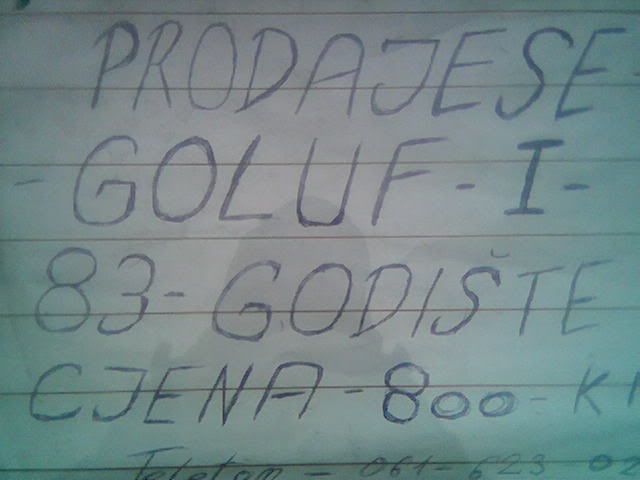 PRODAJE SE -
- GOLUF - I -
83 - GODIŠTE
CJENA - 800 -
Telefon - 061 - 623